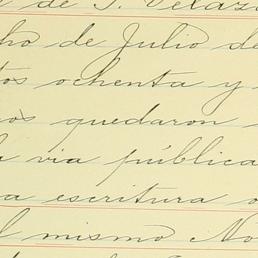 de J. Velaz
ho de Julio de
tos ochenta y
nos quedaron
la via pública
a escritura o
l mismo No